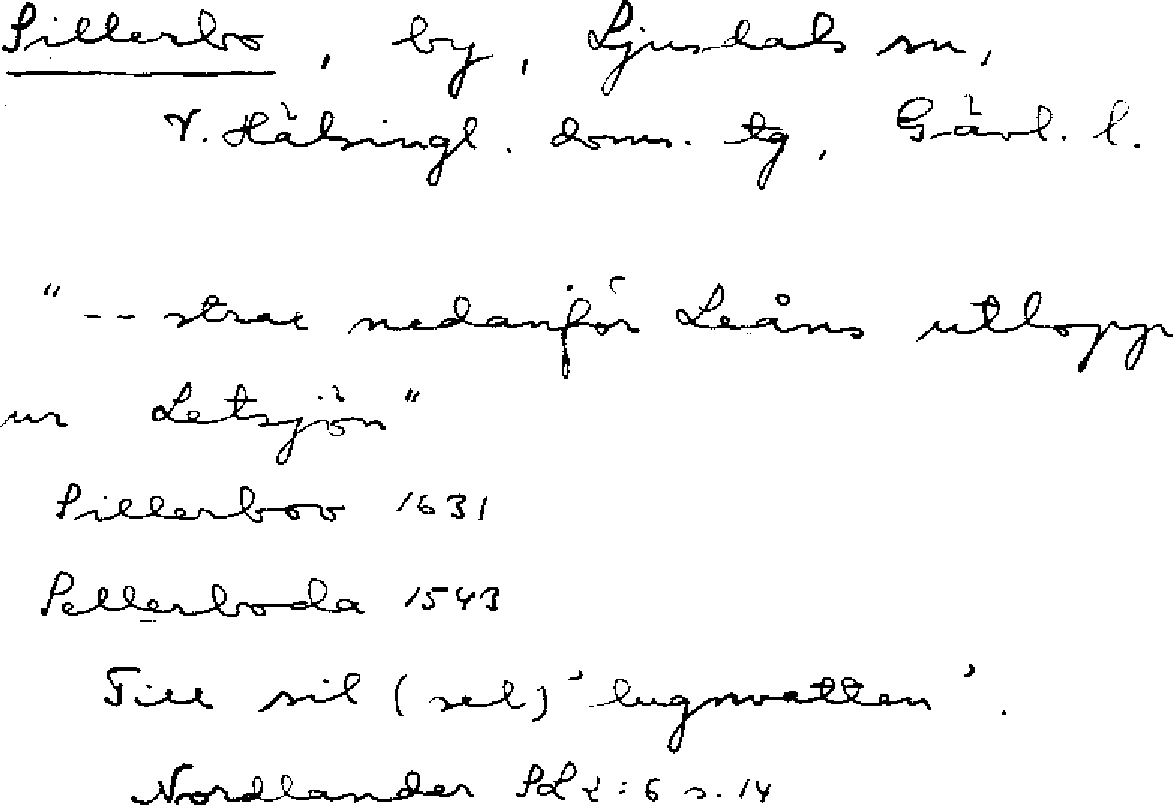 Sillerbo, by, Ljusdals sn,
V. Hälsingl. doms. tg, Gävl. l.
"-- strax nedanför Leåns utlopp
ur Letsjön"
Sillerboo 1631
Sellerboda 1543
Till sil (sel) 'lugnvatten'.
Nordlander SL 2:6 s. 14